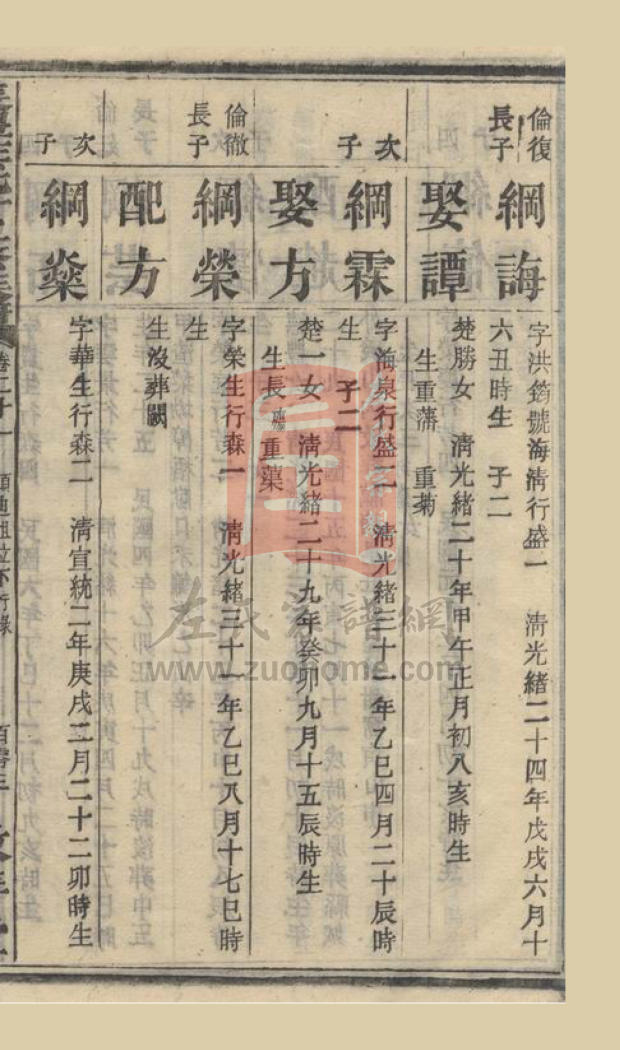 倫復
長子
綱誨
字洪筠號海清行盛一 清光緒二十四年戊戌六月十
六丑時生 子二
娶譚
楚勝女 清光緒二十年甲午正月初八亥時生
生重藩 重菊
次子
綱霖
字海泉行盛二 清光緒三十一年乙巳四月二十辰時
生 子二
娶方
楚一女 清光緒二十九年癸卯九月十五辰時生
生長 重藻
倫徹
長子
綱榮
字榮生行森一 清光緒三十一年乙巳八月十七巳時
生
配方
生沒葬闕
次子
綱燊
字華生行森二 清宣統二年庚戌二月二十二卯時生
卷二十一
左氏家譜網
www.zuohome.com